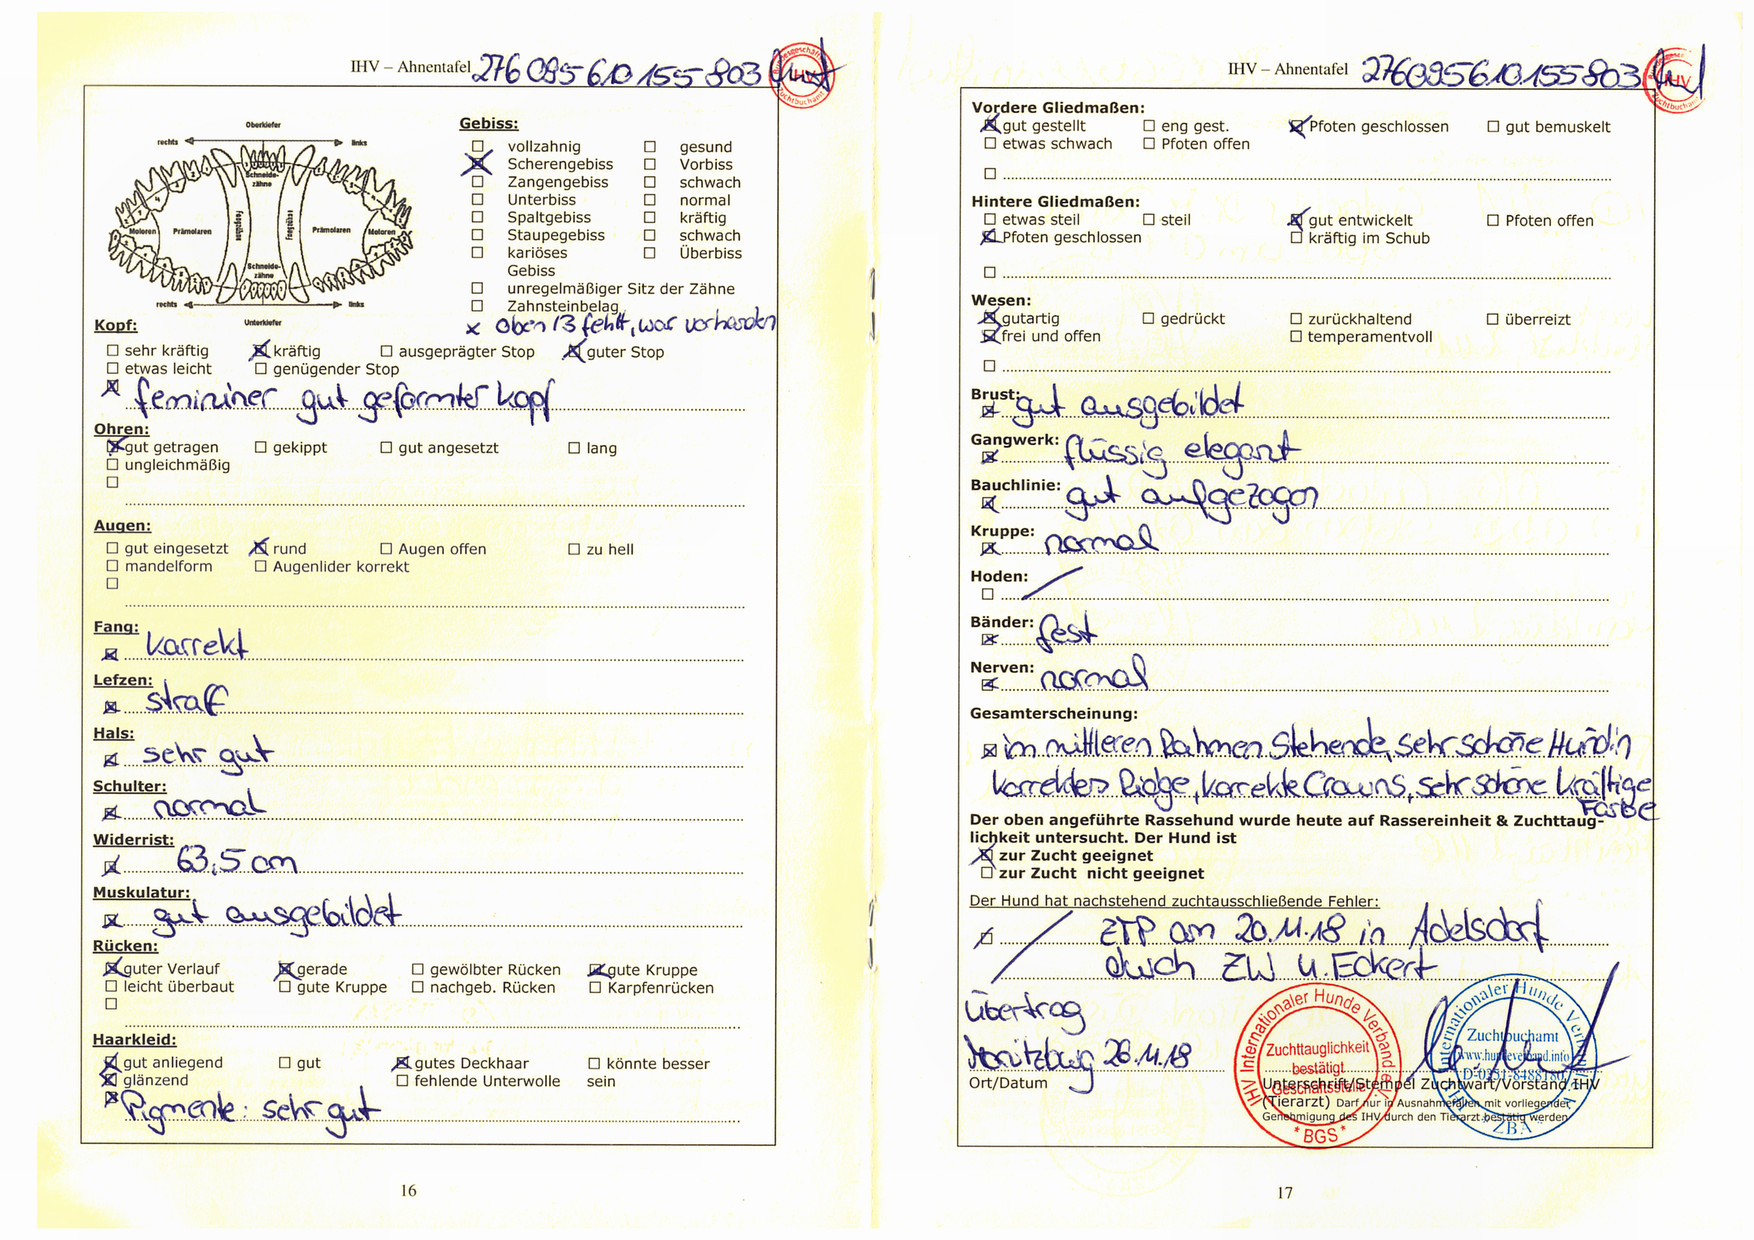 IHV – Ahnentafel 276095610155803
Oberkiefer
rechts links
Schneide-
zähne
Moloren Prämolaren Fangzahn Fangzähne Prämolaren Moloren
Schneide-
zähne
rechts links
Unterkiefer
Gebiss:
☐ vollzahnig ☐ gesund
☒ Scherengebiss ☐ Vorbiss
☐ Zangengebiss ☐ schwach
☐ Unterbiss ☐ normal
☐ Spaltgebiss ☐ kräftig
☐ Staupegebiss ☐ schwach
☐ kariöses ☐ Überbiss
Gebiss
☐ unregelmäßiger Sitz der Zähne
☐ Zahnsteinbelag
x oben 13 fehlt, war vorhanden
Kopf:
☐ sehr kräftig ☒ kräftig ☐ ausgeprägter Stop ☒ guter Stop
☐ etwas leicht ☐ genügender Stop
☒ femininer gut geformter Kopf
Ohren:
☒ gut getragen ☐ gekippt ☐ gut angesetzt ☐ lang
☐ ungleichmäßig
☐
Augen:
☐ gut eingesetzt ☒ rund ☐ Augen offen ☐ zu hell
☐ mandelform ☐ Augenlider korrekt
☐
Fang:
☒ korrekt
Lefzen:
☒ straff
Hals:
☒ sehr gut
Schulter:
☒ normal
Widerrist:
☒ 63,5 cm
Muskulatur:
☒ gut ausgebildet
Rücken:
☒ guter Verlauf ☒ gerade ☐ gewölbter Rücken ☒ gute Kruppe
☐ leicht überbaut ☐ gute Kruppe ☐ nachgeb. Rücken ☐ Karpfenrücken
☐
Haarkleid:
☒ gut anliegend ☐ gut ☒ gutes Deckhaar ☐ könnte besser
☒ glänzend ☐ fehlende Unterwolle sein
☒ Pigmente: sehr gut
16
IHV – Ahnentafel 276095610155803
Vordere Gliedmaßen:
☒ gut gestellt ☐ eng gest. ☒ Pfoten geschlossen ☐ gut bemuskelt
☐ etwas schwach ☐ Pfoten offen
☐
Hintere Gliedmaßen:
☐ etwas steil ☐ steil ☒ gut entwickelt ☐ Pfoten offen
☒ Pfoten geschlossen ☐ kräftig im Schub
☐
Wesen:
☒ gutartig ☐ gedrückt ☐ zurückhaltend ☐ überreizt
☒ frei und offen ☐ temperamentvoll
☐
Brust:
☒ gut ausgebildet
Gangwerk:
☒ flüssig elegant
Bauchlinie:
☒ gut aufgezogen
Kruppe:
☒ normal
Hoden:
☐ /
Bänder:
☒ fest
Nerven:
☒ normal
Gesamterscheinung:
☒ im mittleren Rahmen stehende, sehr schöne Hündin
korrektes Ridge, korrekte Crowns, sehr schöne kräftige
Farbe
Der oben angeführte Rassehund wurde heute auf Rassereinheit & Zuchttaug-
lichkeit untersucht. Der Hund ist
☒ zur Zucht geeignet
☐ zur Zucht nicht geeignet
Der Hund hat nachstehend zuchtausschließende Fehler:
ZTP am 20.11.18 in Adelsdorf
durch ZW U. Eckert
Übertrag
Moritzburg 26.11.18
Ort/Datum
IHV Internationaler Hunde Verband e.V.
Zuchttauglichkeit
bestätigt
Geschäftsstelle
* BGS *
Internationaler Hunde Verband
Zuchtbuchamt
www.hundeverband.info
D-0351-8488180
ZBA
Unterschrift/Stempel Zuchtwart/Vorstand IHV
(Tierarzt) Darf nur in Ausnahmefällen mit vorliegender
Genehmigung des IHV durch den Tierarzt bestätig werden
17